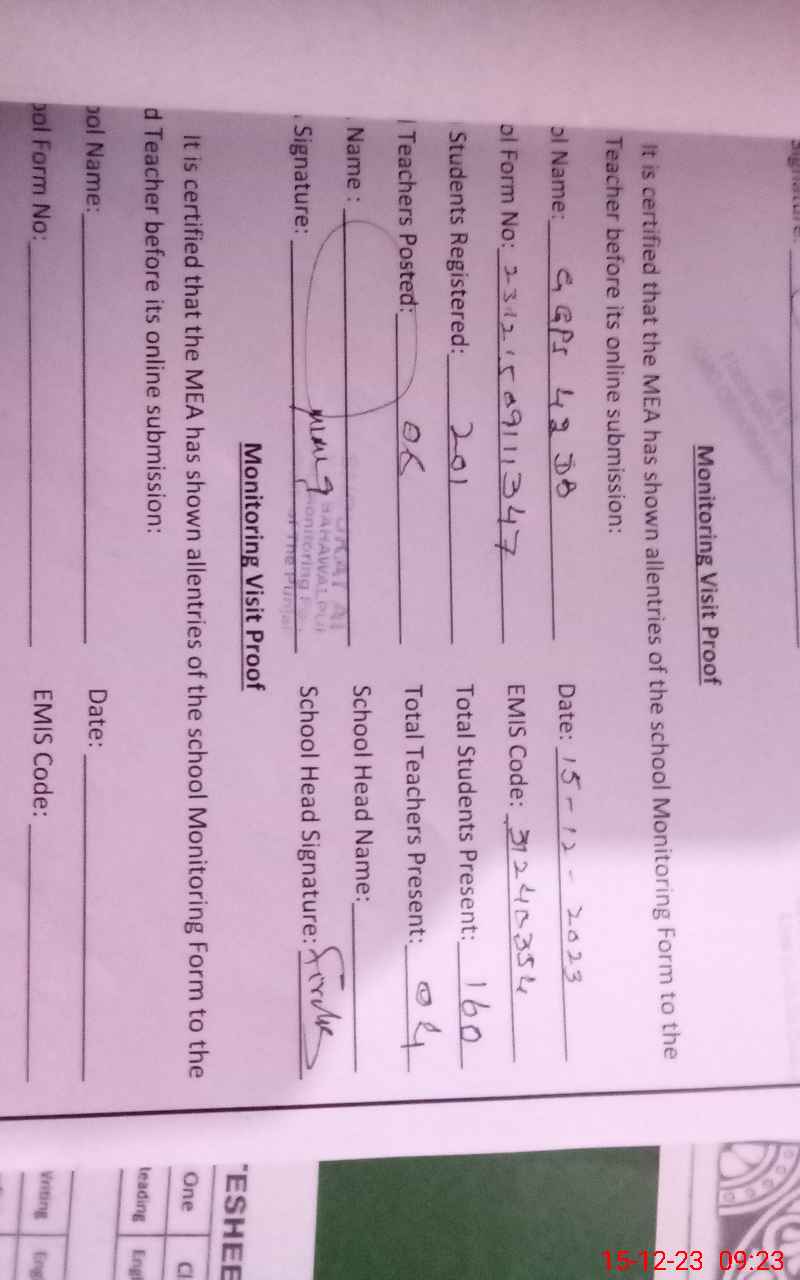 Monitoring Visit Proof
It is certified that the MEA has shown allentries of the school Monitoring Form to the
Teacher before its online submission:
ol Name: GGPS 42 DB Date: 15-12-2023
ol Form No: EMIS Code: 31240354
Students Registered: 201 Total Students Present: 160
Teachers Posted: Total Teachers Present: 04
Name : School Head Name:
Signature: School Head Signature:
BAHAWALPUR
Monitoring
of The Punjab
Monitoring Visit Proof
It is certified that the MEA has shown allentries of the school Monitoring Form to the
d Teacher before its online submission:
ool Name: Date:
ool Form No: EMIS Code:
ESHEE
One Cl
eading Engl
Writing Eng
15-12-23 09:23